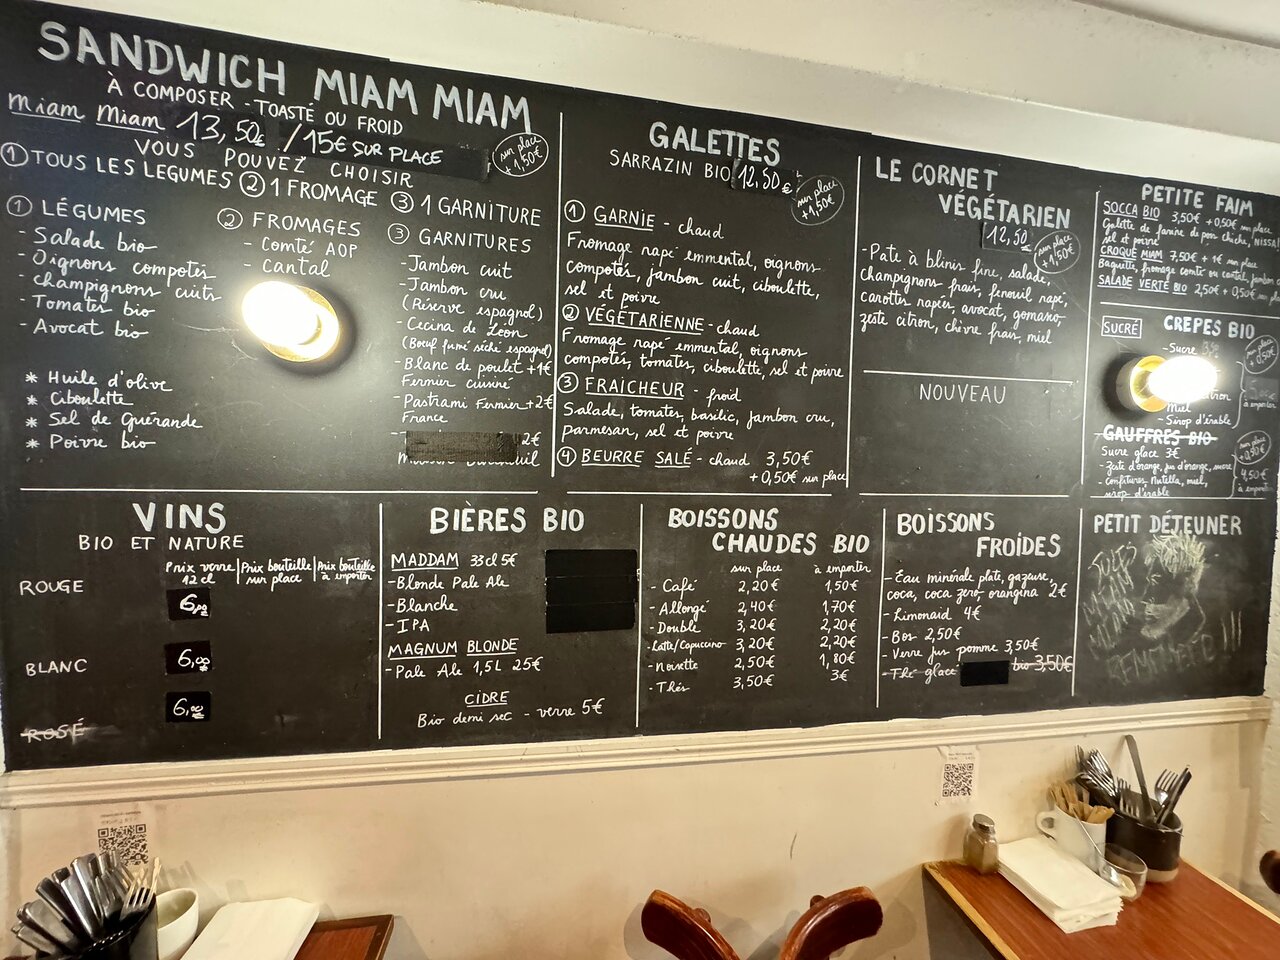 SANDWICH MIAM MIAM
À COMPOSER - TOASTÉ OU FROID
Miam Miam 13,50€ / 15€ SUR PLACE
sur place + 1,50€
VOUS POUVEZ CHOISIR
① TOUS LES LEGUMES ② 1 FROMAGE ③ 1 GARNITURE
① LÉGUMES
- Salade bio
- Oignons compotés
- champignons cuits
- Tomates bio
- Avocat bio
* Huile d'olive
* Ciboulette
* Sel de Guérande
* Poivre bio
② FROMAGES
- Comté AOP
- Cantal
③ GARNITURES
- Jambon cuit
- Jambon cru
(Réserve espagnol)
- Cecina de Leon
(Bœuf fumé séché espagnol)
- Blanc de poulet +1€
Fermier cuisiné
- Pastrami Fermier +2€
France
2€
GALETTES
SARRAZIN BIO 12,50€
sur place + 1,50€
① GARNIE - chaud
Fromage rapé emmental, oignons
compotés, jambon cuit, ciboulette,
sel et poivre
② VÉGÉTARIENNE - chaud
Fromage rapé emmental, oignons
compotés, tomates, ciboulette, sel et poivre
③ FRAÎCHEUR - froid
Salade, tomates, basilic, jambon cru,
parmesan, sel et poivre
④ BEURRE SALÉ - chaud 3,50€
+ 0,50€ sur place
LE CORNET
VÉGÉTARIEN
12,50
sur place + 1,50€
- Pate à blinis fine, salade,
champignons frais, fenouil rapé,
carottes rapées, avocat, gomasio,
zeste citron, chèvre frais, miel
NOUVEAU
PETITE FAIM
SOCCA BIO 3,50€ + 0,50€ sur place
Galette de farine de pois chiche, NISSA
sel et poivre
CROQUE MIAM 7,50€ + 1€ sur place
Baguette, fromage comté ou cantal, jambon
SALADE VERTE BIO 2,50€ + 0,50€ sur
SUCRÉ
CREPES BIO
sur place + 0,50€
- Sucre
Miel
- Sirop d'érable
à emporter
GAUFFRES BIO
sur place + 0,50€
Sucre glace 3€
- Zeste d'orange, jus d'orange, sucre
- Confitures, Nutella, miel,
sirop d'érable
4,50€
à emporter
VINS
BIO ET NATURE
Prix verre 12 cl | Prix bouteille sur place | Prix bouteille à emporter
ROUGE 6,00
BLANC 6,00
ROSÉ 6,00
BIÈRES BIO
MADDAM 33cl 5€
- Blonde Pale Ale
- Blanche
- IPA
MAGNUM BLONDE
- Pale Ale 1,5L 25€
CIDRE
Bio demi sec - verre 5€
BOISSONS
CHAUDES BIO
sur place à emporter
- Café 2,20€ 1,50€
- Allongé 2,40€ 1,70€
- Double 3,20€ 2,20€
- Latte/Capuccino 3,20€ 2,20€
- Noisette 2,50€ 1,80€
- Thés 3,50€ 3€
BOISSONS
FROIDES
- Eau minérale plate, gazeuse,
coca, coca zero, orangina 2€
- Limonaid 4€
- Bos 2,50€
- Verre jus pomme 3,50€
- Thé glacé bio 3,50€
PETIT DÉJEUNER